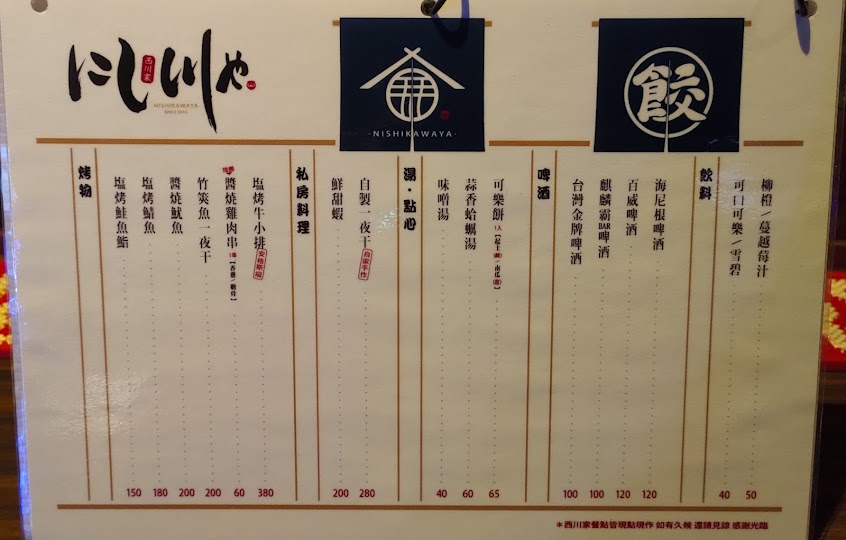 にし川や
西川家
NISHIKAWAYA
NISHIKAWAYA
餃
烤物
塩烤鮭魚鮨 150
塩烤鯖魚 180
醬燒魷魚 200
竹筴魚一夜干 200
醬燒雞肉串 1串【香蔥/雞骨】 60
塩烤牛小排 安格斯級 380
私房料理
鮮甜蝦 200
自製一夜干 自家手作 280
湯・點心
味噌湯 40
蒜香蛤蠣湯 60
可樂餅 1入【起士(鹹)/南瓜(甜)】 65
啤酒
台灣金牌啤酒 100
麒麟霸BAR啤酒 100
百威啤酒 120
海尼根啤酒 120
飲料
可口可樂/雪碧 40
柳橙/蔓越莓汁 50
*西川家餐點皆現點現作 如有久候 還請見諒 感謝光臨